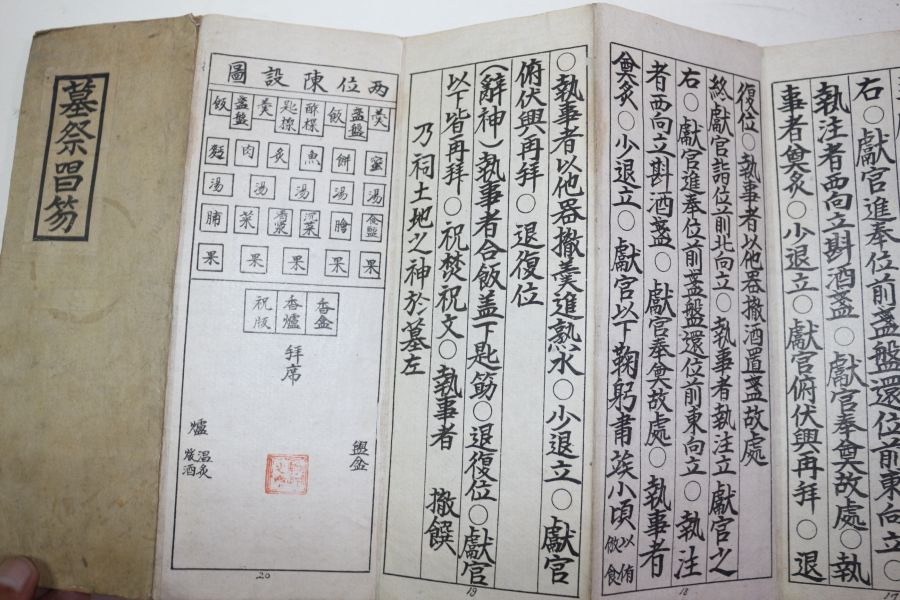 右○獻官進奉位前盞盤還位前東向立○
執注者西向立斟酒盞○獻官奉奠故處○執
事者奠炙○少退立○獻官俯伏興再拜○退
17
復位○執事者以他器撤酒置盞故處
終獻官詣位前北向立○執事者執注立獻官之
右○獻官進奉位前盞盤還位前東向立○執注
者西向立斟酒盞○獻官奉奠故處○執事者
奠炙○少退立○獻官以下鞠躬肅竢小頃
18
○執事者以他器撤羹進熟水○少退立○獻官
俯伏興再拜○退復位
(辭神)執事者合飯盖下匙筯○退復位○獻官
以下皆再拜○祝焚祝文○執事者 撤饌
乃祠土地之神於墓左
19
両位陳設圖
羹 盞盤 飯 醋楪 匙楪 羹 盞盤 飯
蜜 餠 魚 炙 肉 麵
湯 湯 湯 湯 湯
膾 沈菜 淸醬 菜 脯
果 果 果 果 果
香盒 香爐 祝版
拜席
盥盆
爐
温炙
酒
20
墓祭唱笏